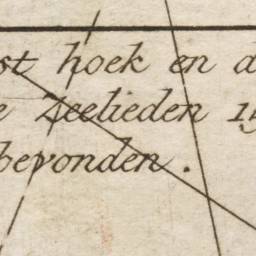 st hoek en d
e Zeelieden 15
bevonden.